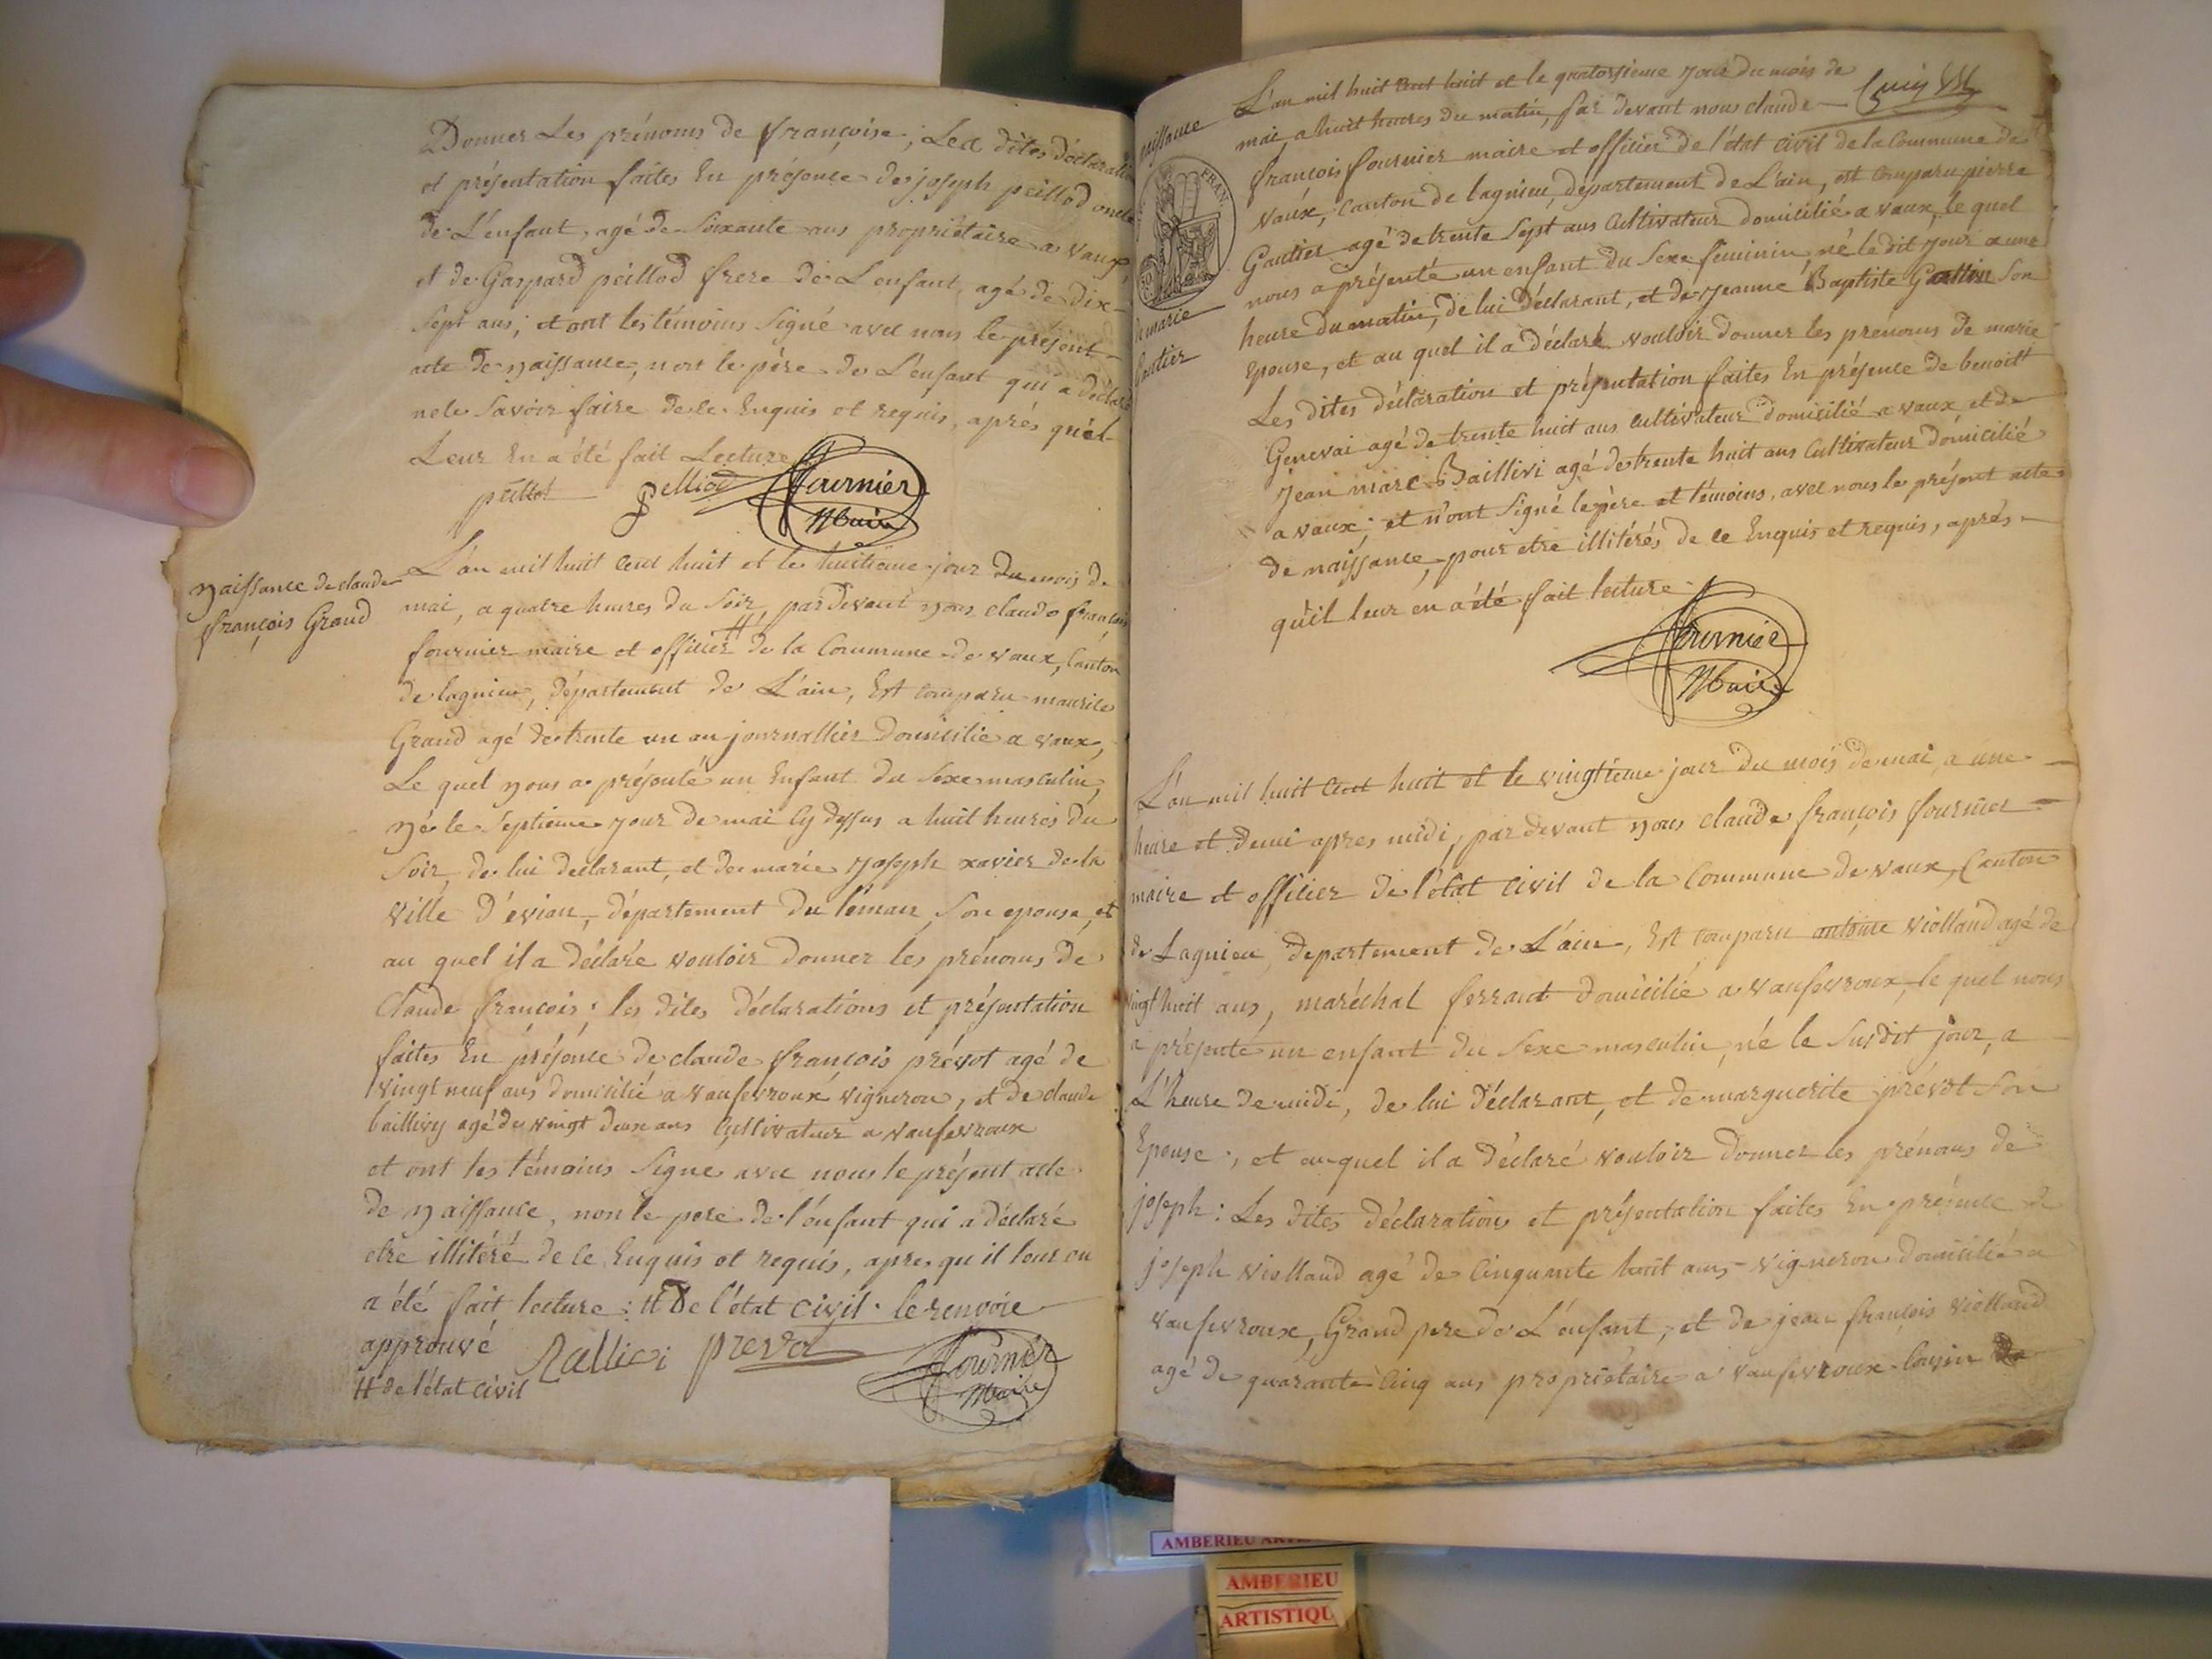 Donner Les prénoms de françoise; Les dites déclaration
et présentation faites En présence de joseph peillod oncle
de L'enfant, agé de Soixante ans propriétaire a vaux,
et de Gaspard peillod frere de L'enfant, agé de dix
sept ans; et ont les témoins Signé avec nous le présent
acte de naissance, non le père de L'enfant qui a déclaré
ne le Savoir faire de ce Enquis et requis, après qu'il
Leur En a été fait Lecture
peillod Pelliod fournier
Maire
naissance de claude
françois Grand
L'an mil huit Cent huit et le huitieme jour Du mois de
mai, a quatre heures du Soir, par devant nous claude françois
fournier maire et officier # de la Commune de vaux, Canton
de lagnieu, Département de L'ain, Est comparu maurice
Grand agé de trente un an journallier Domicilié a vaux,
Le quel nous a présenté un Enfant du Sexe masculin,
né le Septieme jour de mai Cy dessus a huit heures du
Soir, de lui declarant, et de marie joseph xavier de la
ville d'evian, département du léman, Son epouse, et
au quel il a déclaré vouloir Donner les prénoms de
Claude françois; les dites déclarations et présentation
faites En présence de claude françois prévot agé de
vingt neuf ans domicilié a vaufevroux vigneron, et de claude
baillivy agé de vingt deux ans Cultivateur a vaufevroux
et ont les témoins Signé avec nous le présent acte
de naissance, non le pere de l'enfant qui a déclaré
etre illitéré de ce Enquis et requis, apres qu'il leur en
a été fait lecture: # De l'état civil. le renvoie
approuvé Ballivi prevot fournier
# de l'état civil Maire
naissance
FRAN.
de marie
Gautier
L'an mil huit Cent huit et le quatorzieme jour du mois de
mai, a huit heures du matin, par devant nous claude
françois fournier maire et officier de l'état civil de la Commune de
vaux, Canton de lagnieu, département de L'ain, est comparu pierre
Gautier agé de trente Sept ans Cultivateur domicilié a vaux, le quel
nous a présenté un enfant du Sexe féminin, né le dit jour a une
heure du matin, de lui déclarant, et de jeanne Baptiste Son
Epouse, et au quel il a déclaré vouloir donner les prénoms de marie
Les dites déclaration et présentation faites En présence de benoitt
Genevai agé de trente huit ans cultivateur domicilié a vaux, et de
jean marc Baillivi agé de trente huit ans Cultivateur domicilié
a vaux; et n'ont Signé le père et témoins, avec nous le présent acte
de naissance, pour etre illitérés de ce Enquis et requis, après
qu'il leur en a été fait lecture
fournier
Maire
L'an mil huit Cent huit et le vingtieme jour du mois de mai, a une
heure et demi apres midi, par devant nous claude françois fournier
maire et officier de l'état civil de la Commune de vaux, Canton
de Lagnieu, departement de L'ain, Est comparu antoine viollaud agé de
vingt huit ans, maréchal ferrant domicilié a vaufevroux, le quel nous
a présenté un enfant du Sexe masculin, né le Susdit jour, a
L'heure de midi, de lui déclarant, et de marguerite prévot Son
Epouse, et au quel il a déclaré vouloir donner les prénoms de
joseph: Les dites déclarations et présentation faites En présence de
joseph viollaud agé de Cinquante huit ans vigneron domicilié a
vaufevroux, Grand pere de L'enfant, et de jean françois viollaud
agé de quarante Cinq ans propriétaire a vaufevroux Cousin de
AMBERIEU
AMBERIEU
ARTISTIQU